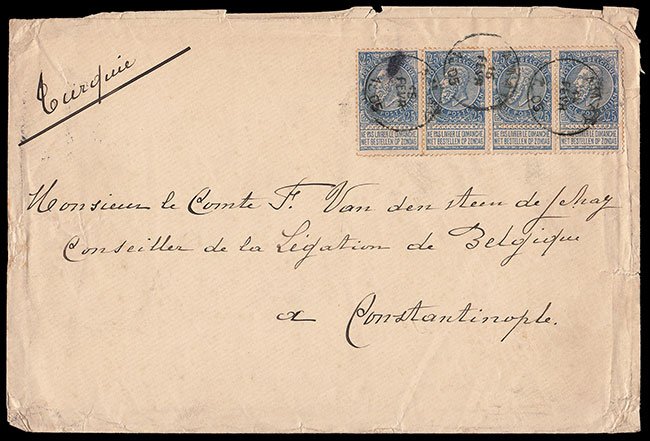 Turquie
25 25 25 25
NE PAS LIVRER LE DIMANCHE NE PAS LIVRER LE DIMANCHE NE PAS LIVRER LE DIMANCHE NE PAS LIVRER LE DIMANCHE
NIET BESTELLEN OP ZONDAG NIET BESTELLEN OP ZONDAG NIET BESTELLEN OP ZONDAG NIET BESTELLEN OP ZONDAG
15 FEVR
Monsieur le Comte F. Van den steen de Jehay
Conseiller de la Légation de Belgique
a Constantinople.